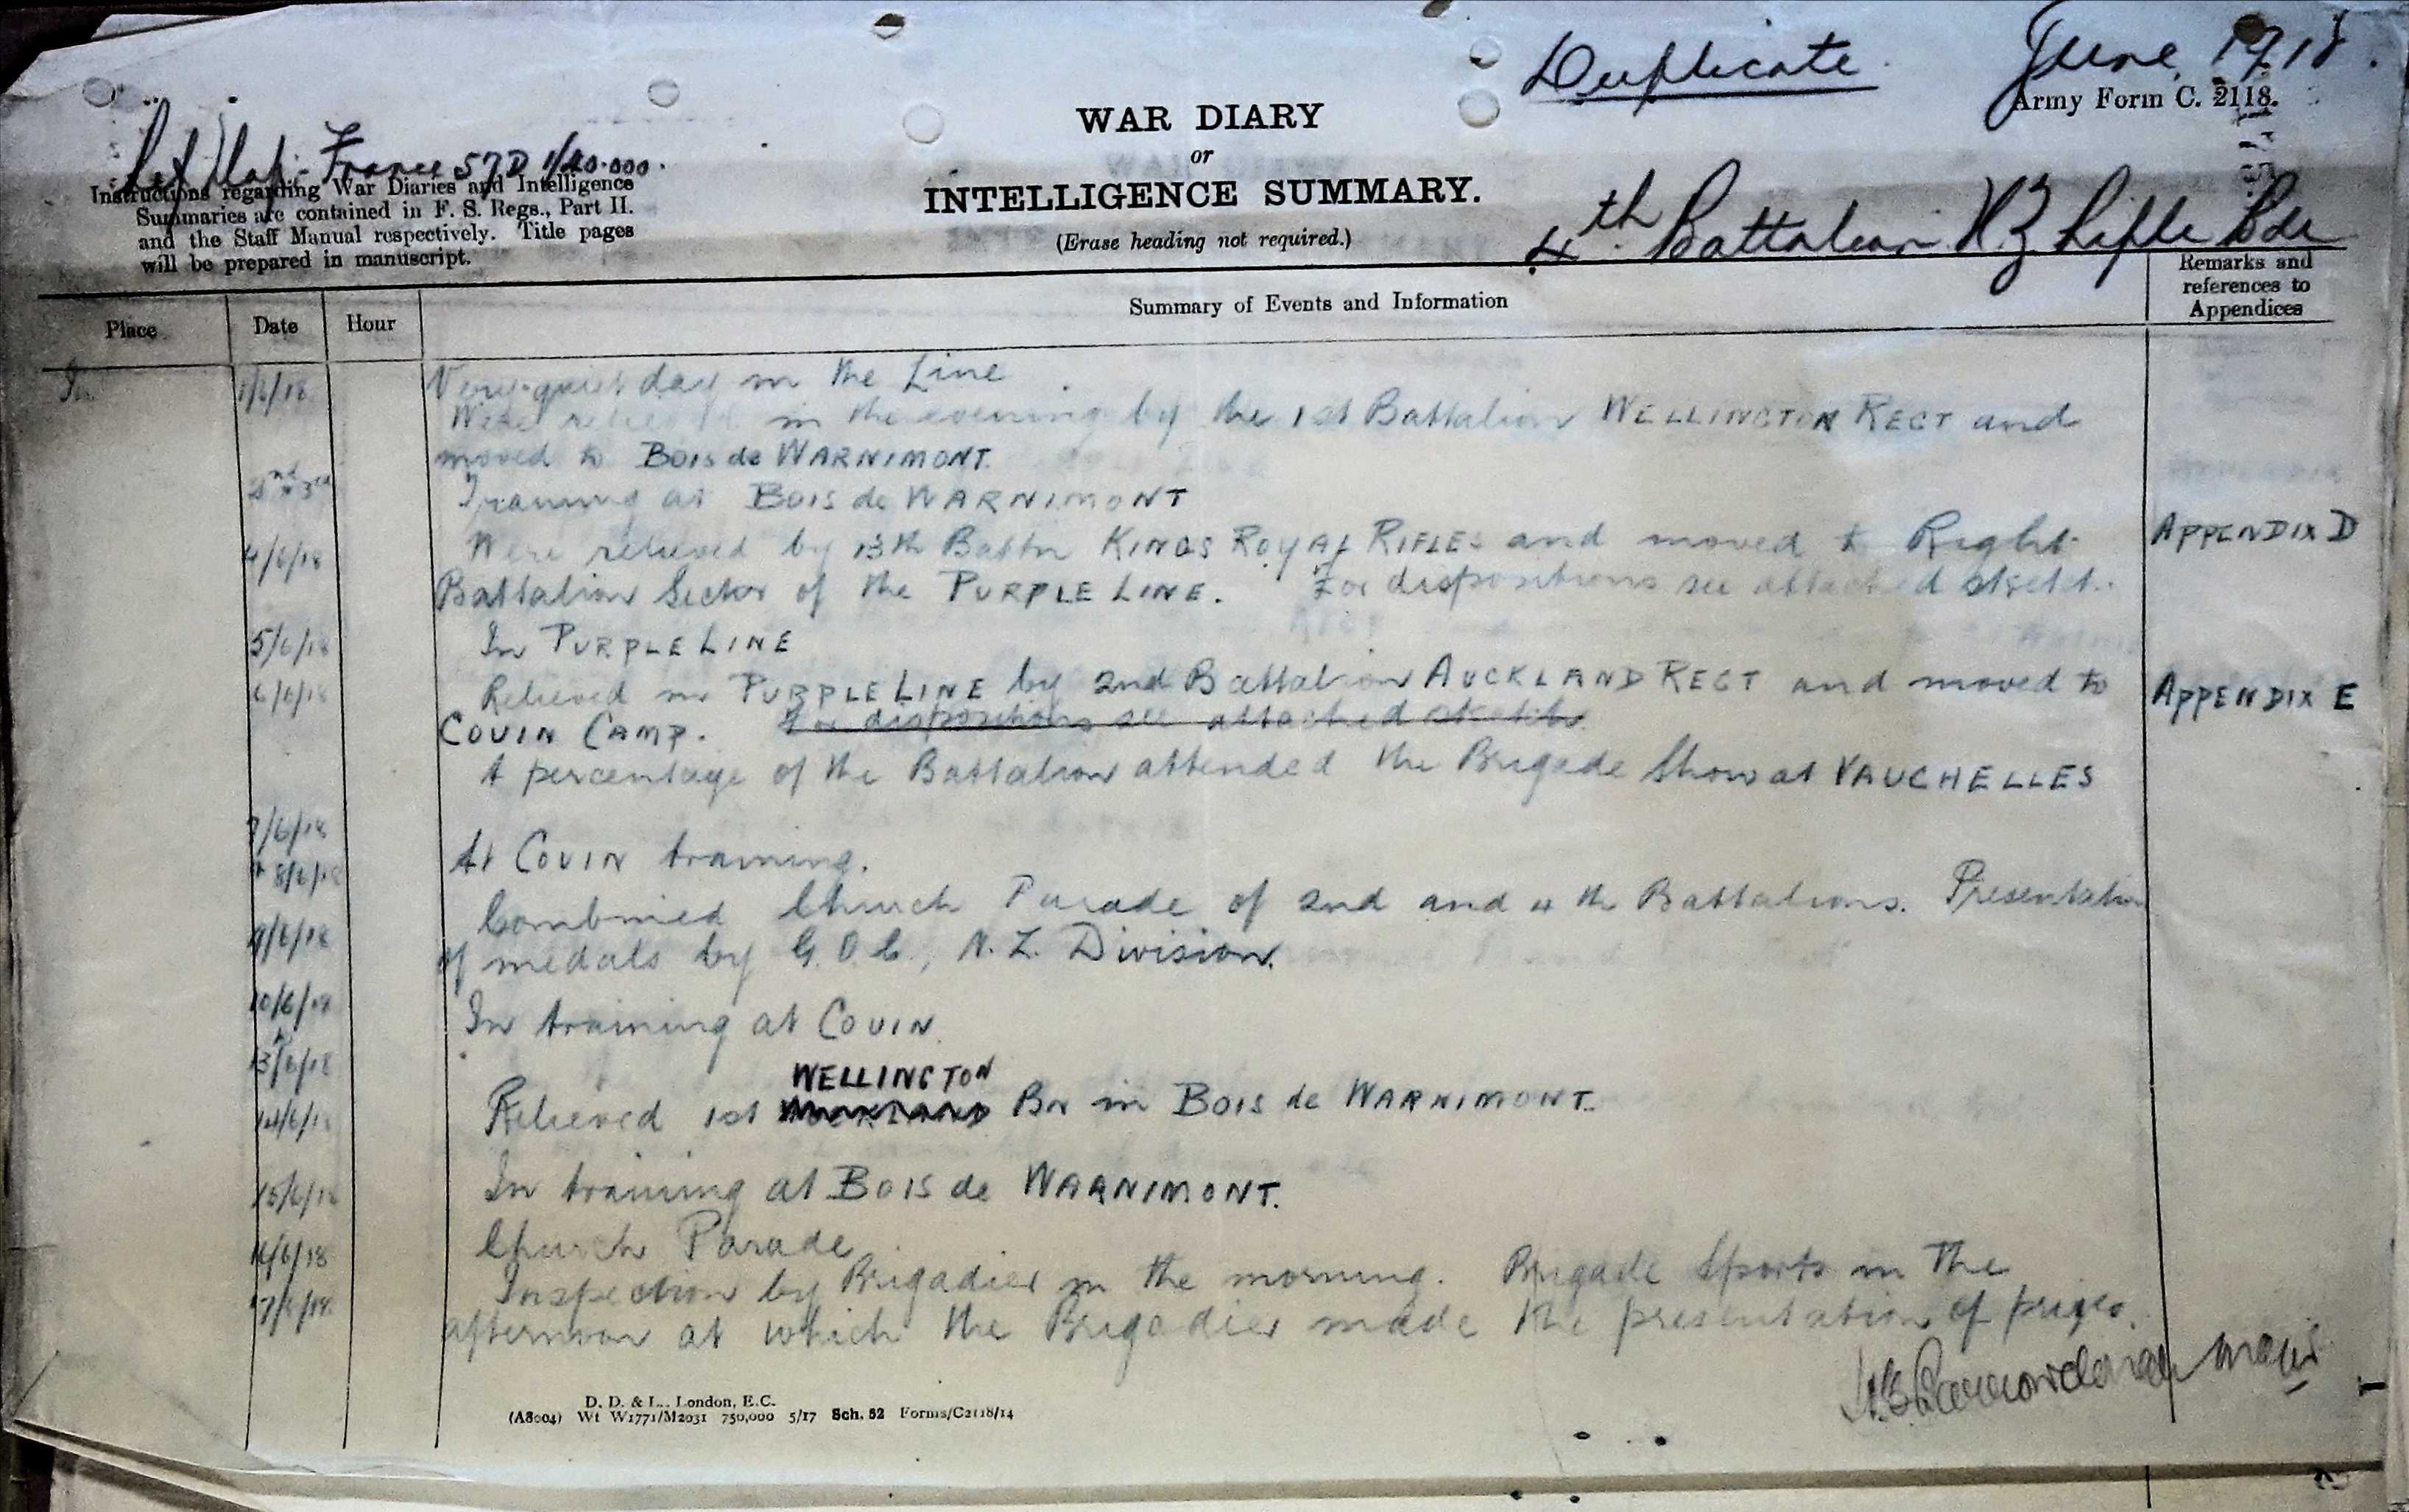 Duplicate. June 1918.
Army Form C. 2118.
Ref Map - France 57D 1/40.000.
WAR DIARY
or
INTELLIGENCE SUMMARY.
(Erase heading not required.)
Instructions regarding War Diaries and Intelligence
Summaries are contained in F. S. Regs., Part II.
and the Staff Manual respectively. Title pages
will be prepared in manuscript.
4th Battalion NZ Rifle Bde
Place Date Hour Summary of Events and Information Remarks and
references to
Appendices
In 1/6/18 Very quiet day in the Line
Were relieved in the evening by the 1st Battalion WELLINGTON REGT and
moved to BOIS de WARNIMONT.
2nd & 3rd Training at BOIS de WARNIMONT
4/6/18 Were relieved by 13th Battn KINGS ROYAL RIFLES and moved to Right APPENDIX D
Battalion Sector of the PURPLE LINE. For dispositions see attached sketch.
5/6/18 In PURPLE LINE
6/6/18 Relieved in PURPLE LINE by 2nd Battalion AUCKLAND REGT and moved to APPENDIX E
COUIN CAMP. For dispositions see attached sketch
A percentage of the Battalion attended the Brigade Show at VAUCHELLES
7/6/18
+ 8/6/18 At COUIN training.
9/6/18 Combined Church Parade of 2nd and 4th Battalions. Presentation
of medals by G.O.C., N.Z. Division.
10/6/18 In training at COUIN
to
13/6/18
WELLINGTON
14/6/18 Relieved 1st AUCKLAND Bn in BOIS de WARNIMONT.
15/6/18 In training at BOIS de WARNIMONT.
16/6/18 Church Parade
17/6/18 Inspection by Brigadier in the morning. Brigade Sports in the
afternoon at which the Brigadier made the presentation of prizes.
Major
D. D. & L., London, E.C.
(A8004) Wt W1771/M2031 750,000 5/17 Sch. 52 Forms/C2118/14